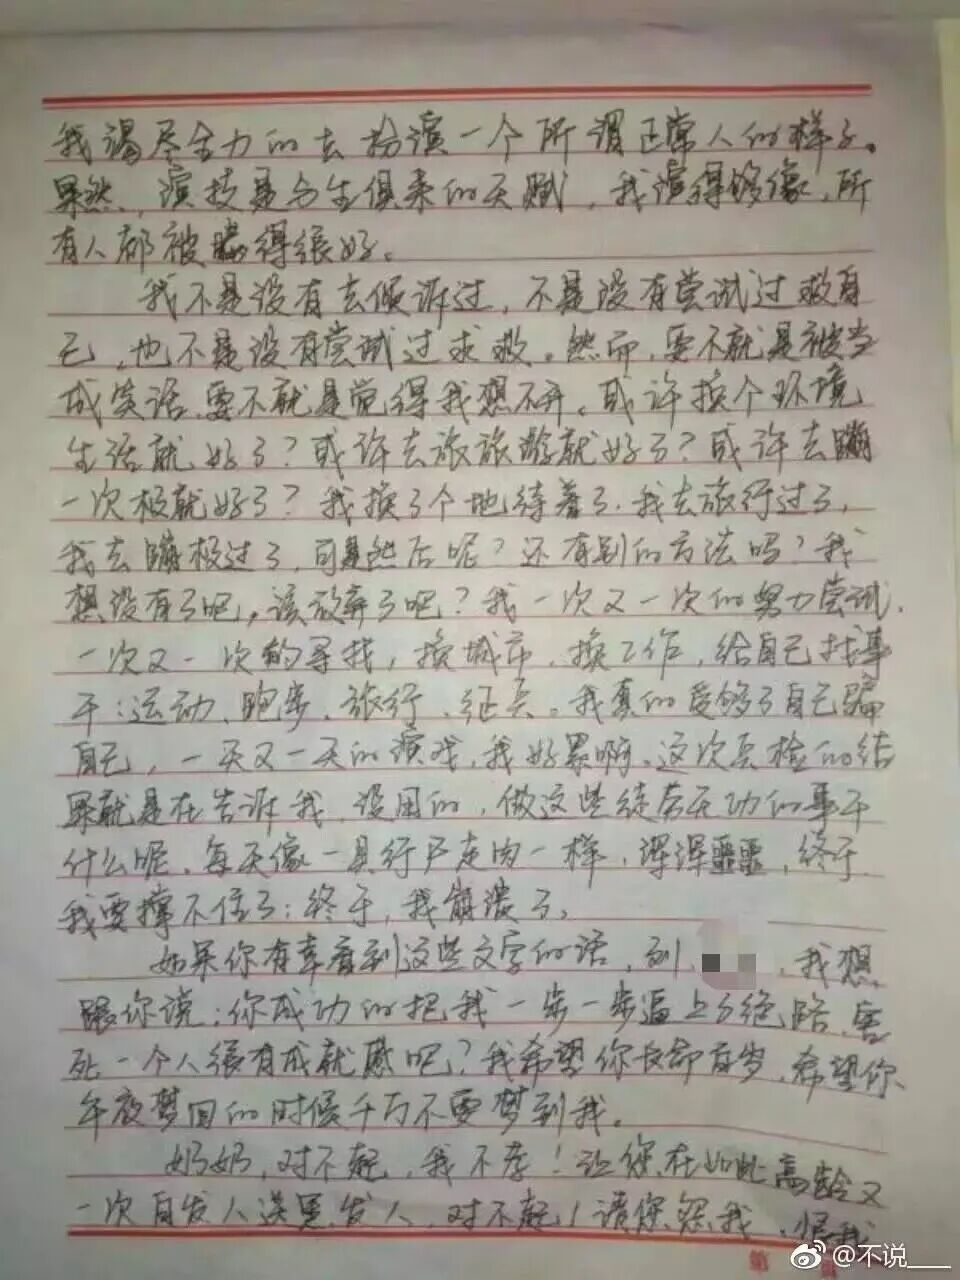 我谒尽全力的去扮演一个所谓正常人的样子。
果然，演技是与生俱来的天赋，我演得够像，所
有人都被瞒得很好。
我不是没有去倾诉过，不是没有尝试过救自
己，也不是没有尝试过求救。然而，要不就是被当
成笑话，要不就是觉得我想不开。或许换个环境
生活就好了？或许去旅旅游就好了？或许去蹦
一次极就好了？我换了个地待着了，我去旅行过了，
我去蹦极过了，可是然后呢？还有别的方法吗？我
想没有了吧，该放弃了吧？我一次又一次的努力尝试，
一次又一次的寻找，换城市，换工作，给自己找事
干：运动、跑步、旅行、征兵。我真的受够了自己骗
自己，一天又一天的演戏，我好累啊。这次兵检的结
果就是在告诉我，没用的，做这些徒劳无功的事干
什么呢，每天像一具行尸走肉一样，浑浑噩噩，终于
我要撑不住了；终于，我崩溃了。
如果你有幸看到这些文字的话，刘，我想
跟你说：你成功的把我一步一步逼上了绝路，害
死一个人很有成就感吧？我希望你长命百岁，希望你
午夜梦回的时候千万不要梦到我。
奶奶，对不起，我不孝！让您在如此高龄又
一次白发人送黑发人，对不起！请您怨我，恨我
第
@不说___